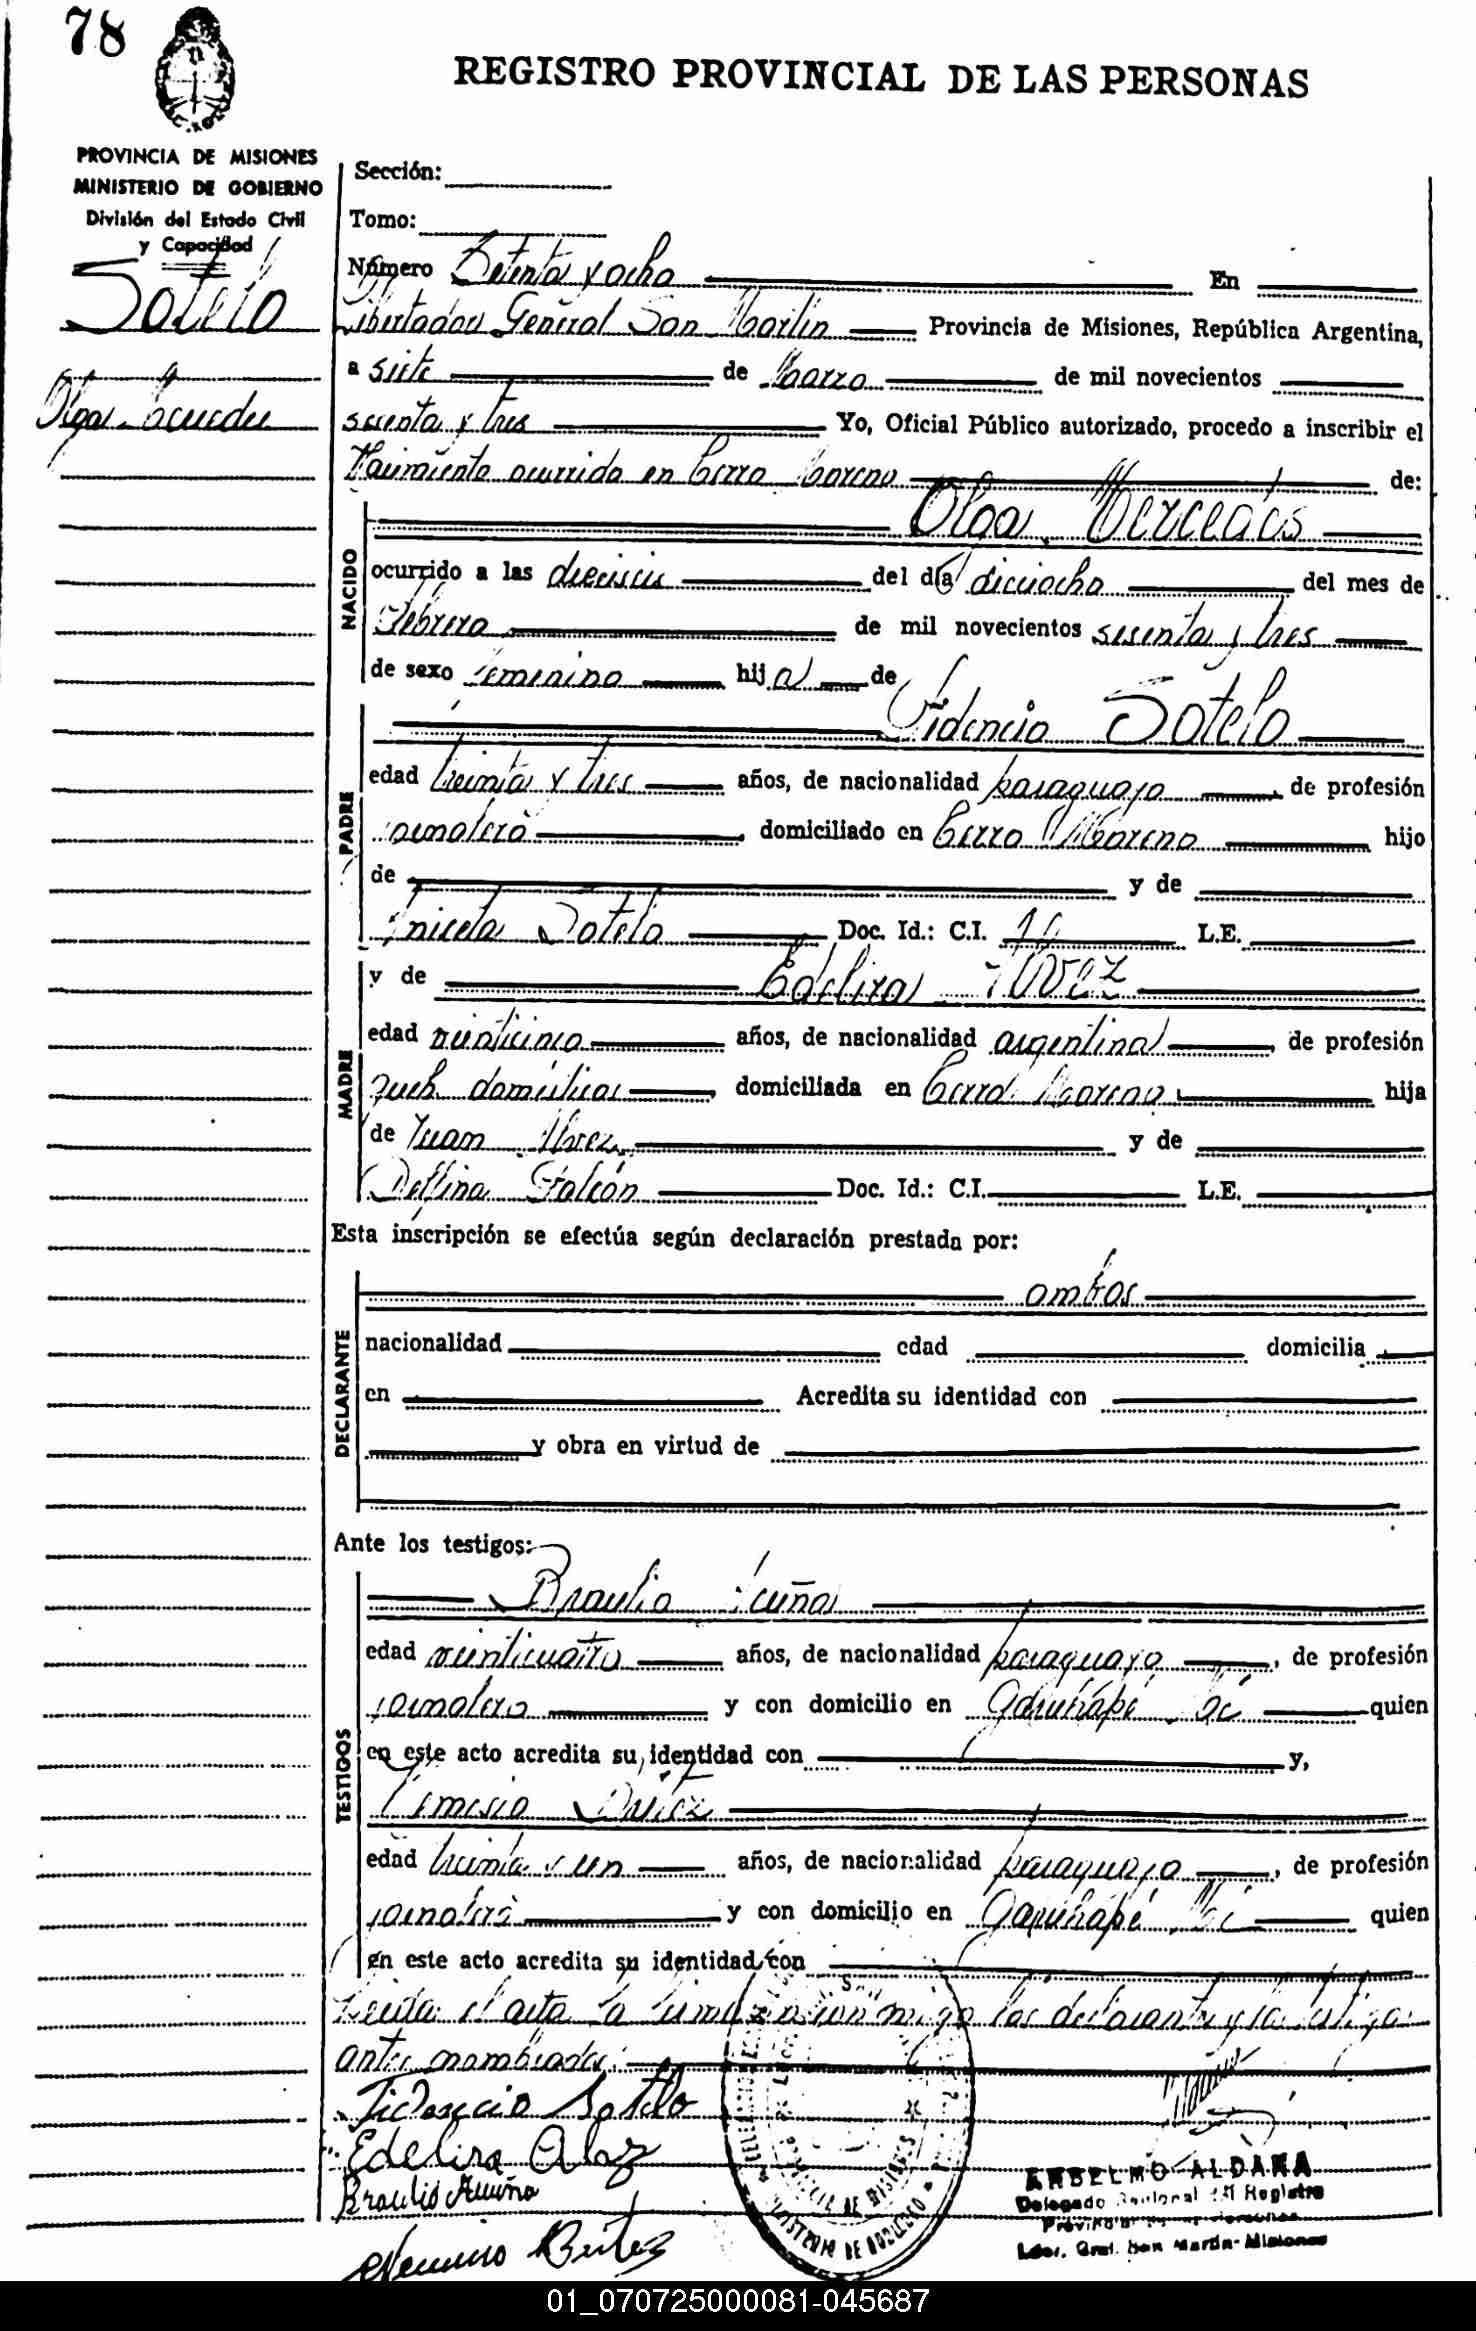 78
REGISTRO PROVINCIAL DE LAS PERSONAS
PROVINCIA DE MISIONES
MINISTERIO DE GOBIERNO
División del Estado Civil
y Capacidad
Sotelo
Olga Mercedes
Sección:
Tomo:
Número Setenta y ocho En
Libertador General San Martín Provincia de Misiones, República Argentina,
a siete de Marzo de mil novecientos
sesenta y tres Yo, Oficial Público autorizado, procedo a inscribir el
Nacimiento ocurrido en Cerro Moreno de:
NACIDO
Olga Mercedes
ocurrido a las dieciseis del día dieciocho del mes de
Febrero de mil novecientos sesenta y tres
de sexo femenino hija de
PADRE
Fidencio Sotelo
edad treinta y tres años, de nacionalidad paraguayo, de profesión
jornalero, domiciliado en Cerro Moreno hijo
de y de
Aniceta Sotelo Doc. Id.: C.I. L.E.
MADRE
y de Edelira Alvez
edad veinticinco años, de nacionalidad argentina, de profesión
queh. domésticos, domiciliada en Cerro Moreno hija
de Juan Alvez y de
Delfina Falcón Doc. Id.: C.I. L.E.
Esta inscripción se efectúa según declaración prestada por:
DECLARANTE
ambos
nacionalidad edad domicilia
en Acredita su identidad con
y obra en virtud de
Ante los testigos:
TESTIGOS
Braulio Acuña
edad veinticuatro años, de nacionalidad paraguayo, de profesión
jornalero y con domicilio en Garuhapé Mí quien
en este acto acredita su identidad con y,
Nemesio Benitez
edad treinta y un años, de nacionalidad paraguayo, de profesión
jornalero y con domicilio en Garuhapé Mí quien
en este acto acredita su identidad con
Leida el acta la firman conmigo los declarantes y los testigos
antes nombrados.
Fidencio Sotelo
Edelira Alvez
Braulio Acuña
Nemesio Benitez
PROVINCIA DE MISIONES
MINISTERIO DE GOBIERNO
ANSELMO ALDANA
Delegado Seccional del Registro
Provincial de las Personas
Lder. Gral. San Martín-Misiones
01_070725000081-045687